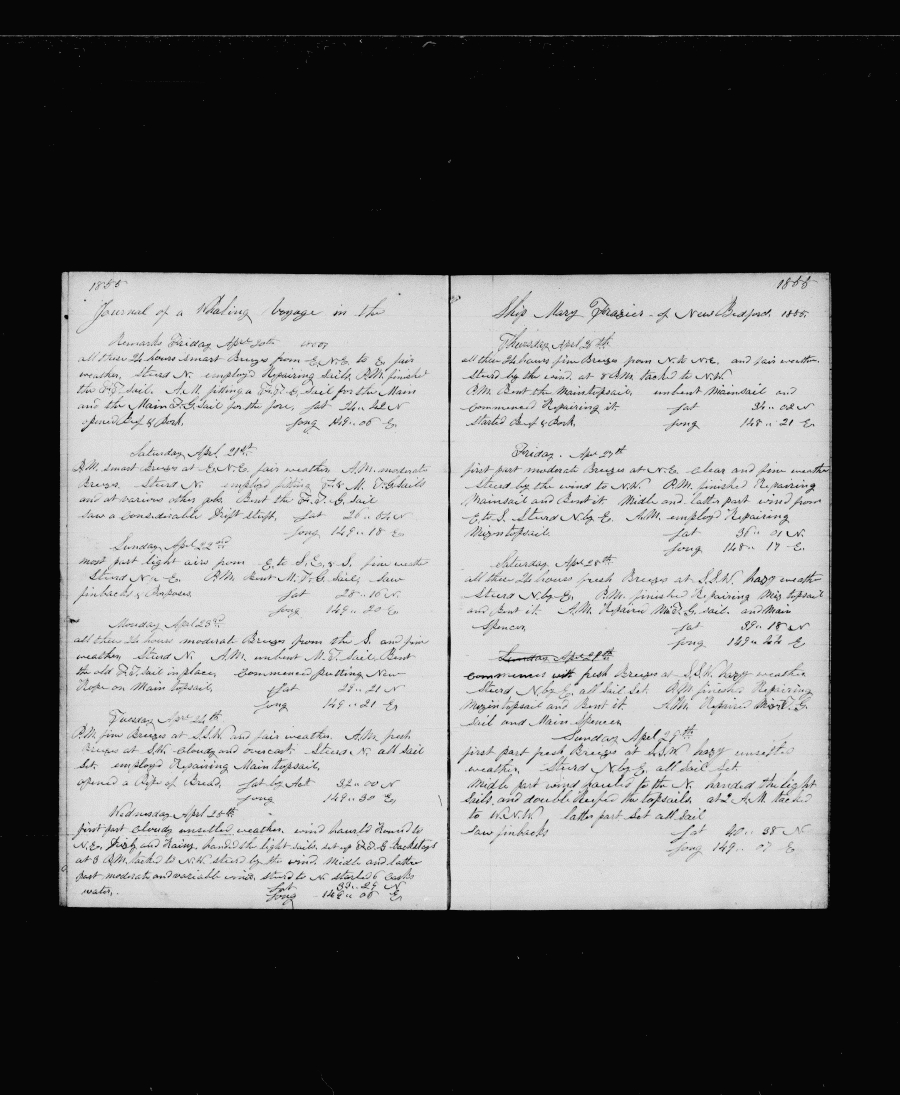 1855
Journal of a Whaling Voyage in the
Remarks Friday Apr 20th
all these 24 hours smart Breezes from E.N.E. to E. fair
weather, Steerd N. employd Repairing Sails, P.M. finished
the F.T. Sail. A.M. fitting a F.T.G. Sail for the Main
and the Main T.G. Sail for the fore, Lat 24 .. 42 N
opened Beef & Pork. Long 149 .. 06 E.
Saturday Apl. 21st
P.M. smart Breezes at E.N.E. fair weather A.M. moderate
Breezes. Steerd N. employd fitting F. & M. T.G. Sails
and at various other jobs. Bent the F.T.G. Sail
saw a considerable Drift stuff, Lat 26 .. 04 N
Long 149 .. 18 E
Sunday Apl 22nd
most part light airs from E. to S.E. & S. fine weather
Steerd N & E. P.M. Bent M.T.G. Sail, Saw
finbacks & Porpoises. Lat 28 .. 10 N.
Long 149 .. 20 E.
Monday Apl 23rd
all these 24 hours moderate Breezes from the S. and fair
weather, Steerd N. A.M. unbent M.T. Sail, Bent
the old F.T. Sail in place, Commenced putting New
Rope on Main topsail. Lat 29 .. 21 N
Long 149 .. 21 E
Tuesday Apr 24th
P.M. fine Breezes at S.S.W. and fair weather. A.M. fresh
Breezes at S.W. Cloudy and overcast. Steerd N. all sail
Set. employd Repairing Main topsail,
opened a Pipe of Bread. Lat by Act 32 .. 00 N
Long 149 .. 30 E,
Wednesday Apl 25th
first part Cloudy unsettled weather. wind hauld Round to
N.E. and Rainy, handed the light sails. set up F.T.G backstays
at 8 P.M. tacked to N.W. steerd by the wind. Middle and latter
part moderate and variable winds, steerd to N. started 6 Casks
water. Lat 33 .. 29 N
Long 149 .. 06 E,
1855
Ship Mary Frazier of New Bedford, 1855.
Thursday April 26th
all these 24 hours fine Breezes from N. & N.E. and fair weather
Steerd by the wind. at 8 P.M. tacked to N.W.
P.M. Bent the Main topsail, unbent Mainsail and
Commenced Repairing it Lat 34 .. 02 N
Started Beef & Pork. Long 148 .. 21 E
Friday. Apr 27th
first part moderate Breezes at N.E. Clear and fine weather
Steerd by the wind to N.W. P.M. finished Repairing
Mainsail and Bent it. Middle and latter part wind from
E to S. Steerd N. by E. A.M. employd Repairing
Mizentopsail. Lat 36 .. 01 N.
Long 148 .. 17 E.
Saturday, Apr 28th
all these 24 hours fresh Breezes at S.S.W. hazy weather
Steerd N. by E. P.M. finished Repairing Miz topsail
and Bent it. A.M. Repaired Miz T.G. sail. and Main
Spencer, Lat 39 .. 18 N
Long 149 .. 44 E
Sunday Apr 29th
Commences with fresh Breezes at S.S.W. hazy weather
Steerd N. by E. all sail set. P.M. finished Repairing
Mizentopsail and Bent it. A.M. Repaired Miz T.G.
Sail and Main Spencer
Sunday, Apl 29th
first part fresh Breezes at S.S.W. hazy unsettled
weather, Steerd N. by E. all Sail Set.
Middle part wind hauled to the N. handed the light
Sails, and double Reefed the topsails. at 2 A.M. tacked
to W.N.W. latter part Set all Sail
Saw finbacks Lat 40 .. 38 N
Long 149 .. 07 E